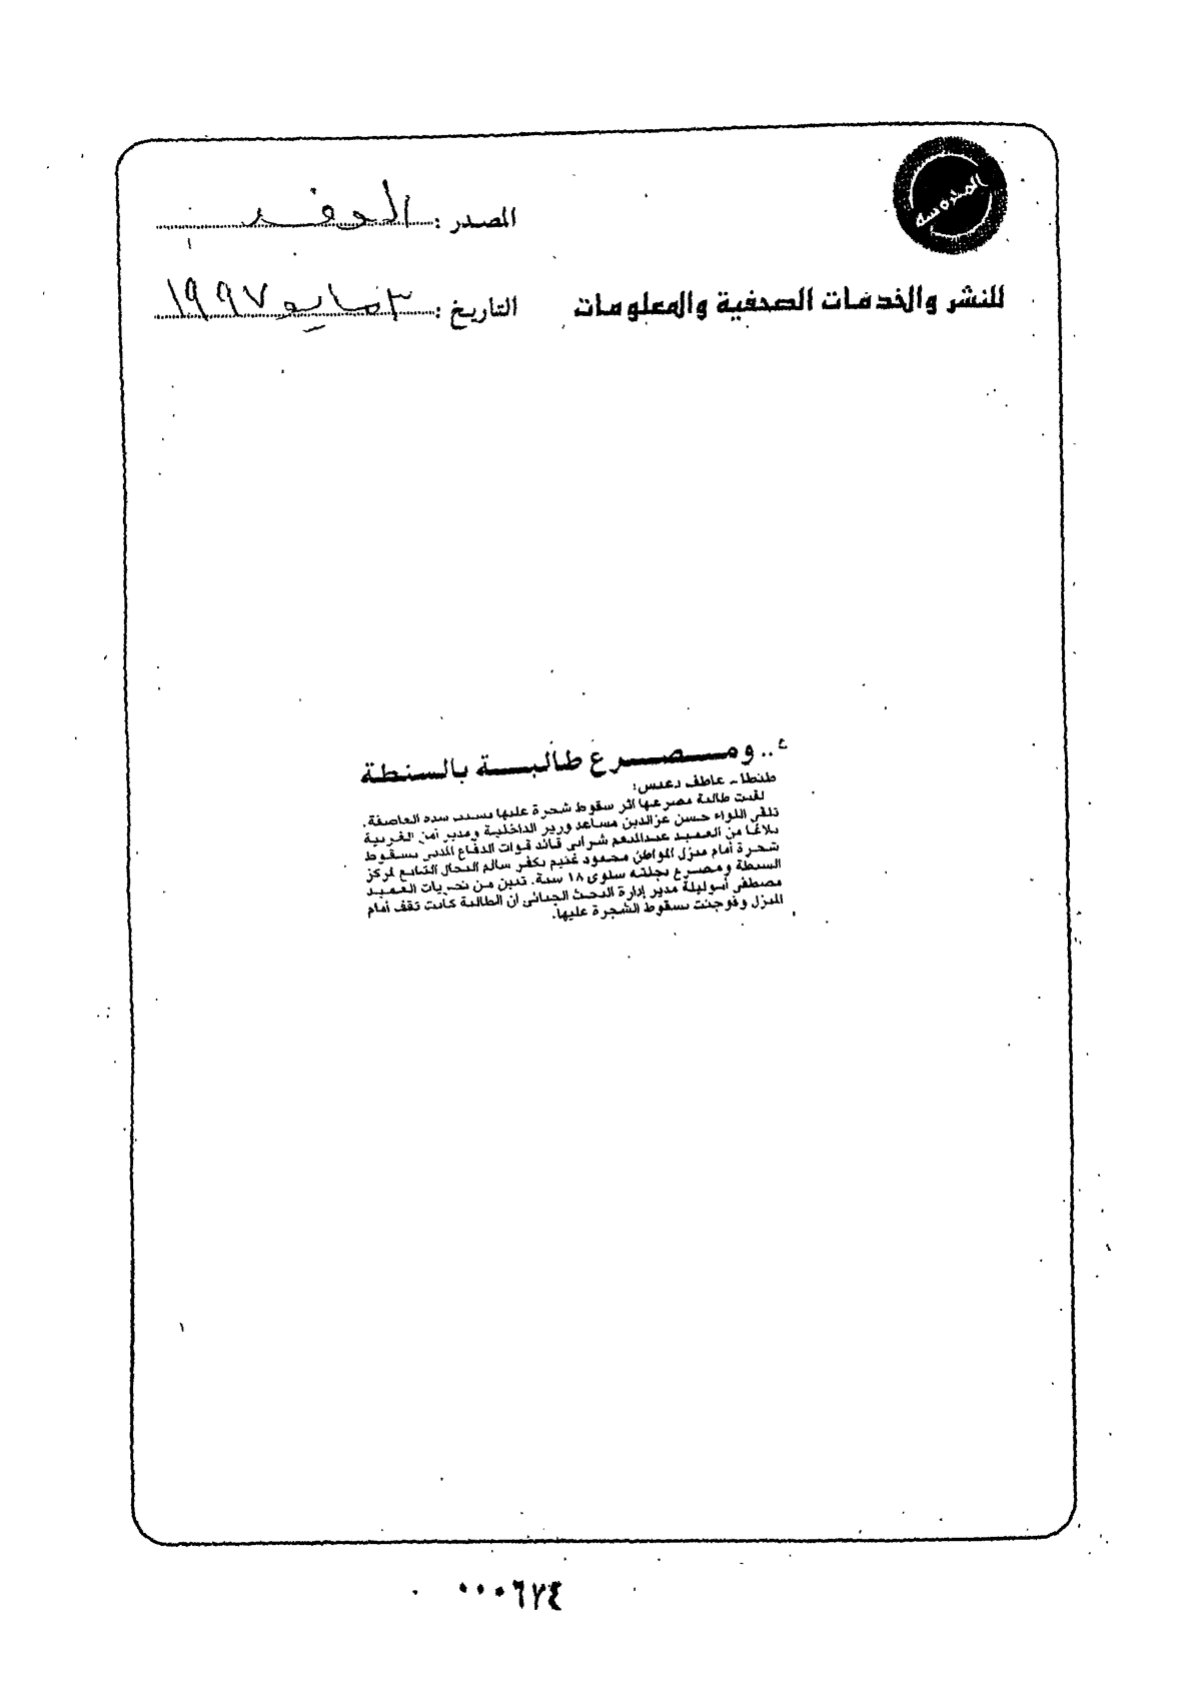 المدوسة
المصدر : الوفد
للنشر والخدمات الصحفية والمعلومات
التاريخ : ٣ مايو ١٩٩٧
.. ومصرع طالبة بالسنطة
طنطا ـ عاطف دعبس:
لقيت طالبة مصرعها اثر سقوط شجرة عليها بسبب شدة العاصفة.
تلقى اللواء حسن عزالدين مساعد وزير الداخلية ومدير أمن الغربية
بلاغا من العميد عبدالمنعم شرابى قائد قوات الدفاع المدنى بسقوط
شجرة أمام منزل المواطن محمود غنيم بكفر سالم النحال التابع لمركز
السنطة ومصرع نجلته سلوى ١٨ سنة. تبين من تحريات العميد
مصطفى أبوليلة مدير إدارة البحث الجنائى ان الطالبة كانت تقف أمام
المنزل وفوجئت بسقوط الشجرة عليها.
٠٠٠٦٧٤